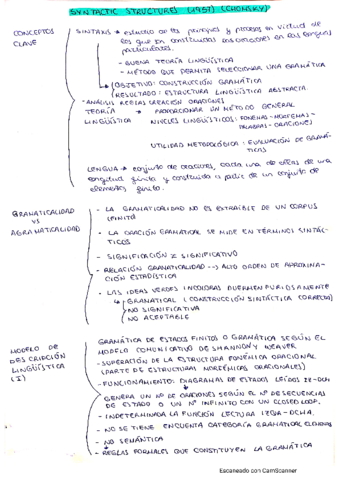 SYNTACTIC STRUCTURES (1957) (CHOMSKY)
CONCEPTOS
CLAVE
SINTAXIS → estudio de los principios y procesos en virtud de
los que son construidas las oraciones en las lenguas
particulares.
- BUENA TEORÍA LINGÜÍSTICA
- MÉTODO QUE PERMITA SELECCIONAR UNA GRAMÁTICA
OBJETIVO: CONSTRUCCIÓN GRAMÁTICA
RESULTADO: ESTRUCTURA LINGÜÍSTICA ABSTRACTA
- ANÁLISIS REGLAS CREACIÓN ORACIONES
TEORÍA → PROPORCIONAR UN MÉTODO GENERAL
LINGÜÍSTICA NIVELES LINGÜÍSTICOS: FONEMAS - MORFEMAS -
PALABRAS - ORACIONES
UTILIDAD METODOLÓGICA: EVALUACIÓN DE GRAMÁ-
TICAS
LENGUA → conjunto de oraciones, cada una de ellas de una
longitud finita y construida a partir de un conjunto de
elementos finito.
GRAMATICALIDAD
VS
AGRAMATICALIDAD
- LA GRAMATICALIDAD NO ES EXTRAÍBLE DE UN CORPUS
FINITO
- LA ORACIÓN GRAMATICAL SE MIDE EN TÉRMINOS SINTÁC-
TICOS
- SIGNIFICACIÓN ≠ SIGNIFICATIVO
- RELACIÓN GRAMATICALIDAD --> ALTO ORDEN DE APROXIMA-
CIÓN ESTADÍSTICA
- LAS IDEAS VERDES INCOLORAS DUERMEN FURIOSAMENTE
GRAMATICAL (CONSTRUCCIÓN SINTÁCTICA CORRECTA)
NO SIGNIFICATIVA
NO ACEPTABLE
MODELO DE
DESCRIPCIÓN
LINGÜÍSTICA
(I)
GRAMÁTICA DE ESTADOS FINITOS O GRAMÁTICA SEGÚN EL
MODELO COMUNICATIVO DE SHANNON Y WEAVER
- SUPERACIÓN DE LA ESTRUCTURA FONÉMICA ORACIONAL
(PARTE DE ESTRUCTURAS MORFÉMICAS ORACIONALES)
- FUNCIONAMIENTO: DIAGRAMAS DE ESTADOS LEÍDOS IZ-DCH
GENERA UN Nº DE ORACIONES SEGÚN EL Nº DE SECUENCIAS
DE ESTADO O UN Nº INFINITO CON UN CLOSED LOOP.
- INDETERMINADA LA FUNCIÓN LECTURA IZQDA-DCHA.
- NO SE TIENE EN CUENTA CATEGORÍA GRAMATICAL ELEMENTOS
- NO SEMÁNTICA
- REGLAS FORMALES QUE CONSTITUYEN LA GRAMÁTICA
Escaneado con CamScanner